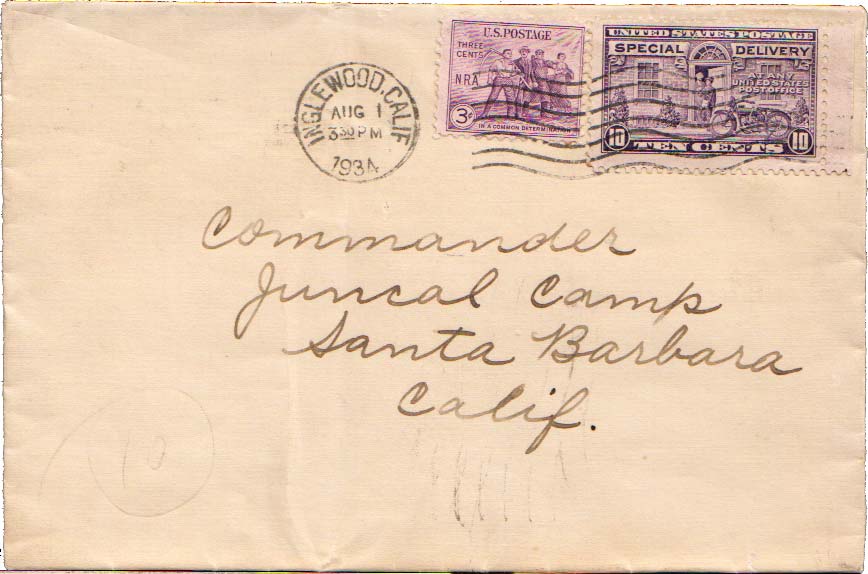 U.S.POSTAGE
THREE CENTS
NRA
3¢
IN A COMMON DETERMINATION
UNITED STATES POSTAGE
SPECIAL DELIVERY
AT ANY
UNITED STATES
POST OFFICE
10 TEN CENTS 10
INGLEWOOD, CALIF
AUG 1
3 30 PM
1934
Commander
Juncal Camp
Santa Barbara
Calif.
10